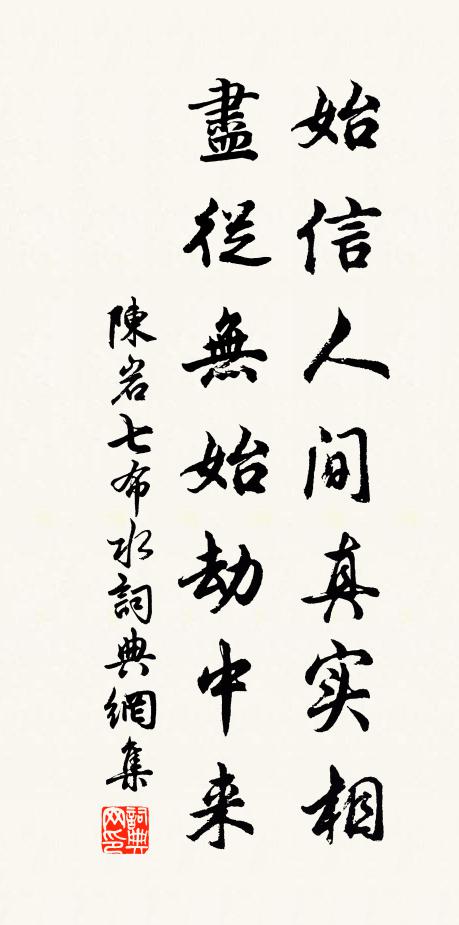 始信人间真实相
盡從無始劫中来
陳岩七布水詞典網集
詞典网印